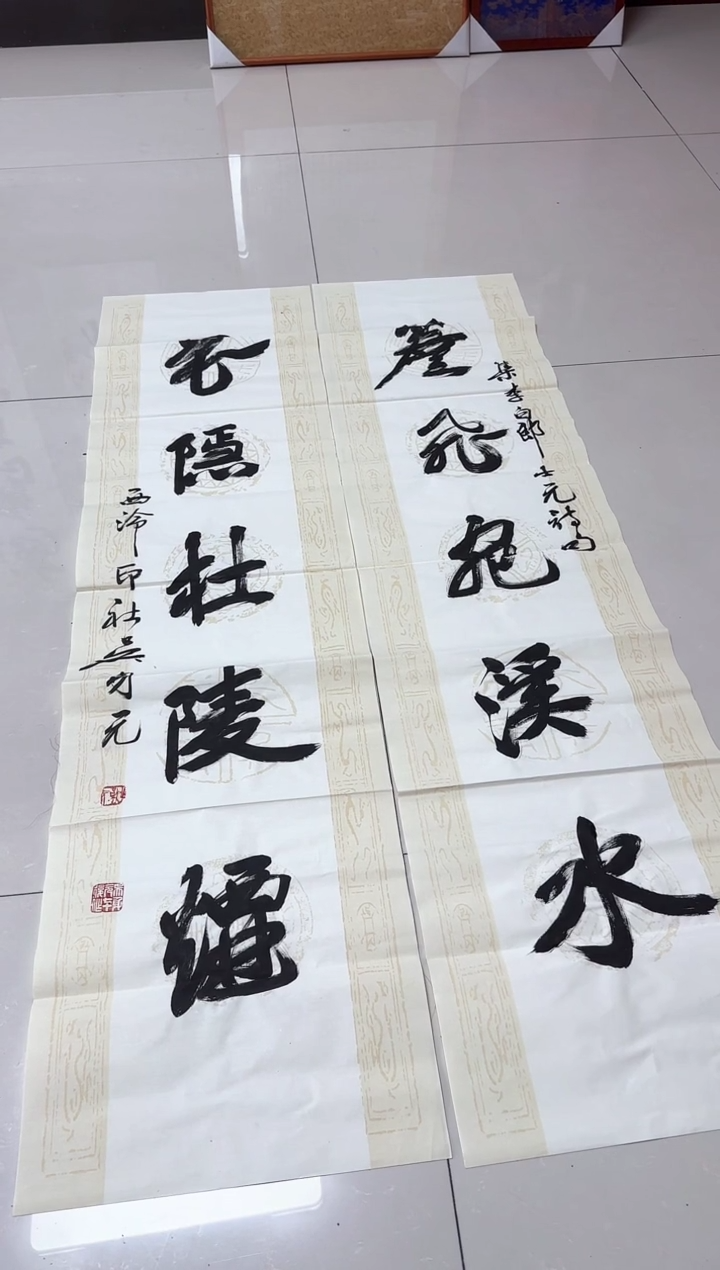 簷飛宛溪水
集李白郎士元詩句
花隱杜陵煙
西泠印社吳元